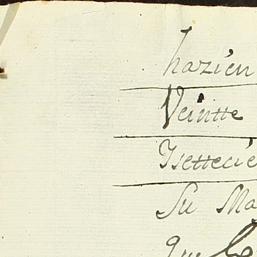 hazien
Veintte
Isettecie
Su Ma
que